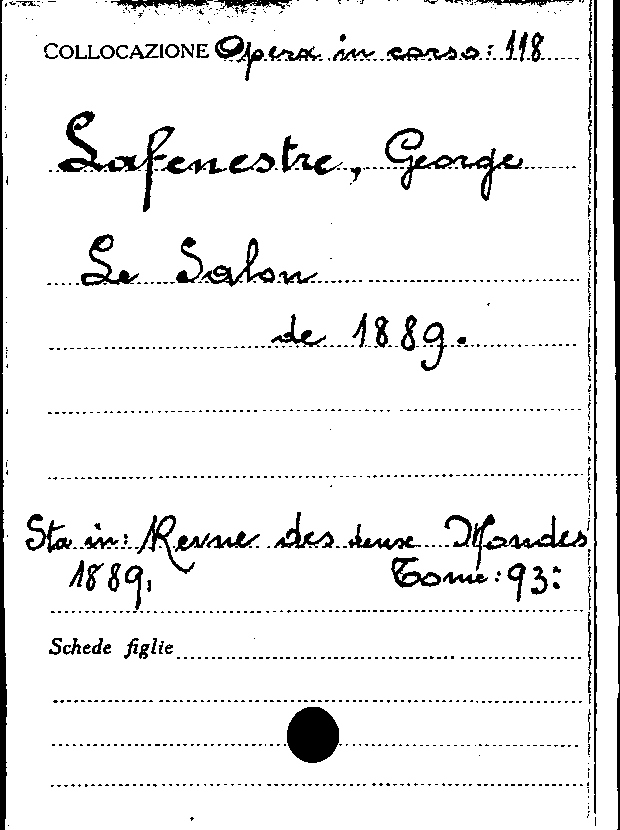 COLLOCAZIONE Opera in corso: 118
Lafenestre, George
Le Salon
de 1889.
Sta in: Revue des deux Mondes
1889, Tome: 93:
Schede figlie